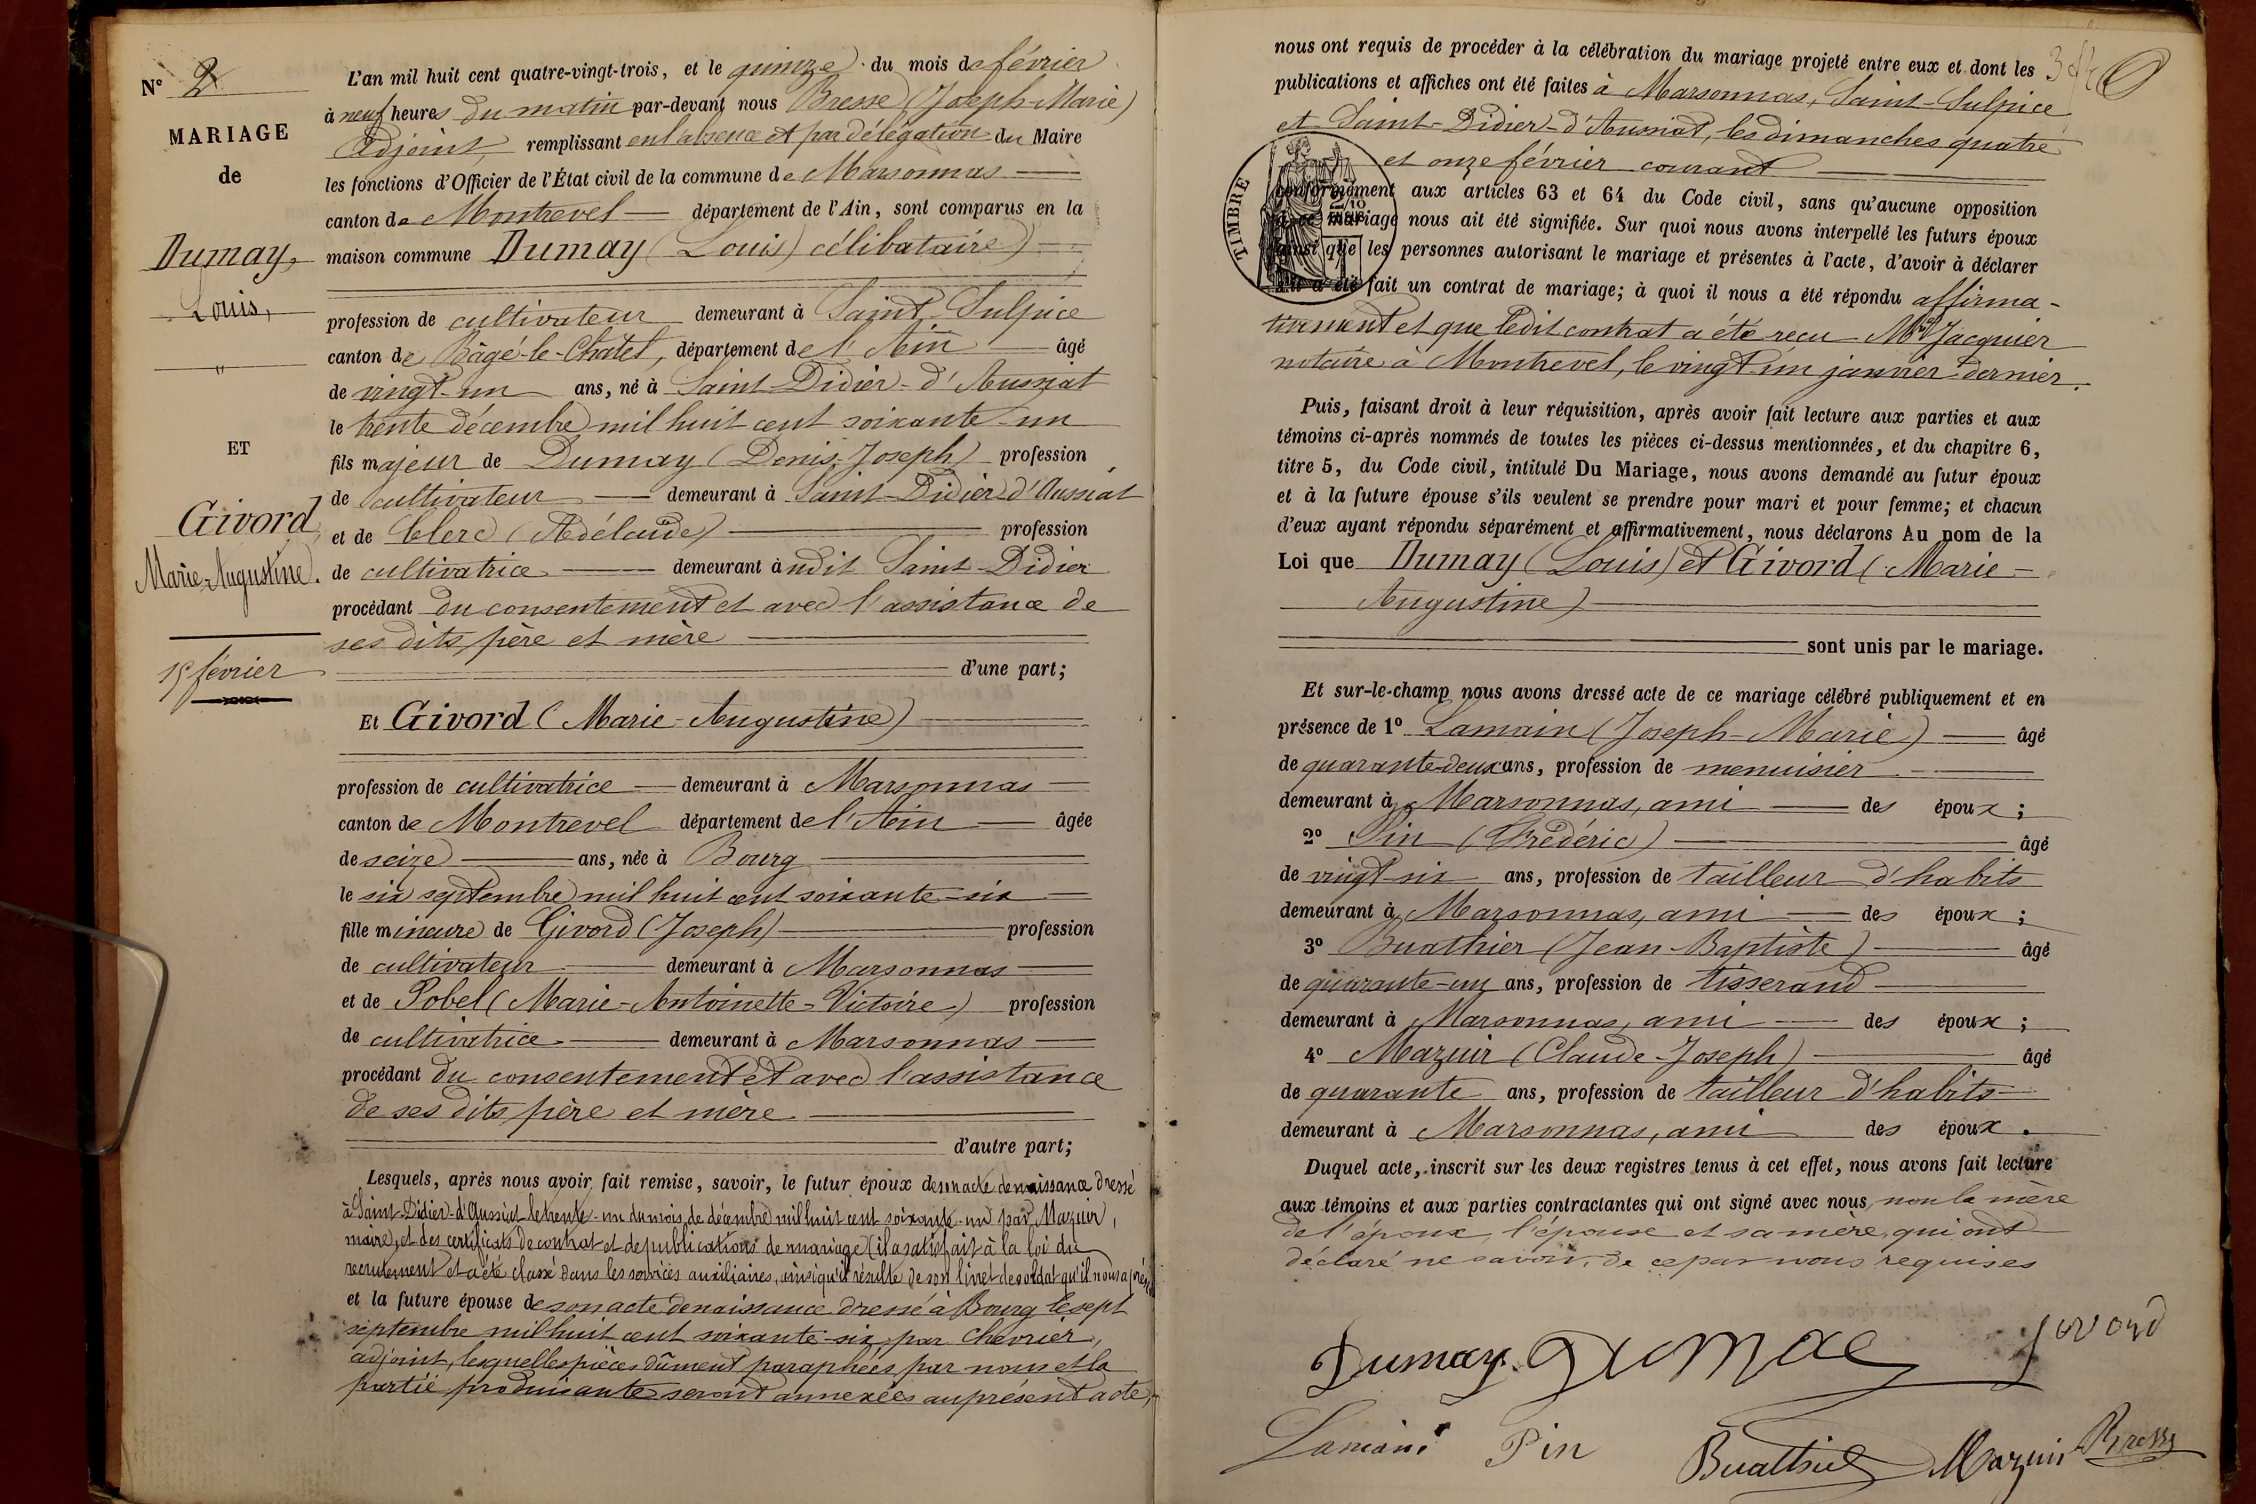 N° 2
MARIAGE
de
Dumay,
Louis,
"
ET
Givord
Marie-Augustine.
15 février
L'an mil huit cent quatre-vingt-trois, et le quinze du mois de février
à neuf heures du matin par-devant nous Bresse (Joseph-Marie)
Adjoint, remplissant en l'absence et par délégation du Maire
les fonctions d'Officier de l'État civil de la commune de Marsonnas
canton de Montrevel département de l'Ain, sont comparus en la
maison commune Dumay (Louis) célibataire)
profession de cultivateur demeurant à Saint-Sulpice
canton de Bâgé-le-Chatel, département de l'Ain âgé
de vingt-un ans, né à Saint-Didier-d'Aussiat
le trente décembre mil huit cent soixante-un
fils majeur de Dumay (Denis-Joseph) profession
de cultivateur demeurant à Saint-Didier d'Aussiat
et de Clerc (Adélaïde) profession
de cultivatrice demeurant àudit Saint-Didier
procédant du consentement et avec l'assistance de
ses dits père et mère
d'une part;
Et Givord (Marie-Augustine)
profession de cultivatrice demeurant à Marsonnas
canton de Montrevel département de l'Ain âgée
de seize ans, née à Bourg
le six septembre mil huit cent soixante-six
fille mineure de Givord (Joseph) profession
de cultivateur demeurant à Marsonnas
et de Pobel (Marie-Antoinette-Victoire) profession
de cultivatrice demeurant à Marsonnas
procédant du consentement et avec l'assistance
de ses dits père et mère
d'autre part;
Lesquels, après nous avoir fait remise, savoir, le futur époux de son acte de naissance dressé
à Saint-Didier-d'Aussiat le trente-un du mois de décembre mil huit cent soixante-un par Mazuir,
maire, et des certificats de contrat et de publications de mariage (il a satisfait à la loi du
recrutement et a été classé dans les services auxiliaires, ainsi qu'il résulte de son livret de soldat qu'il nous a
et la future épouse de son acte de naissance dressé à Bourg le sept
septembre mil huit cent soixante-six, par Chevrier,
adjoint, lesquelles pièces dûment paraphées par nous et la
partie produisante seront annexées au présent acte,
nous ont requis de procéder à la célébration du mariage projeté entre eux et dont les
publications et affiches ont été faites à Marsonnas, Saint-Sulpice
et Saint-Didier-d'Aussiat, les dimanches quatre
et onze février courant
TIMBRE
conformément aux articles 63 et 64 du Code civil, sans qu'aucune opposition
à ce mariage nous ait été signifiée. Sur quoi nous avons interpellé les futurs époux
ainsi que les personnes autorisant le mariage et présentes à l'acte, d'avoir à déclarer
s'il a été fait un contrat de mariage; à quoi il nous a été répondu affirma-
tivement et que ledit contrat a été reçu Me Jacquier
notaire à Montrevel, le vingt-un janvier dernier.
Puis, faisant droit à leur réquisition, après avoir fait lecture aux parties et aux
témoins ci-après nommés de toutes les pièces ci-dessus mentionnées, et du chapitre 6,
titre 5, du Code civil, intitulé Du Mariage, nous avons demandé au futur époux
et à la future épouse s'ils veulent se prendre pour mari et pour femme; et chacun
d'eux ayant répondu séparément et affirmativement, nous déclarons Au nom de la
Loi que Dumay (Louis) et Givord (Marie-
Augustine)
sont unis par le mariage.
Et sur-le-champ nous avons dressé acte de ce mariage célébré publiquement et en
présence de 1° Lamain (Joseph-Marie) âgé
de quarante-deux ans, profession de menuisier
demeurant à Marsonnas, ami des époux;
2° Pin (Frédéric) âgé
de vingt-six ans, profession de tailleur d'habits
demeurant à Marsonnas, ami des époux;
3° Buathier (Jean-Baptiste) âgé
de quarante-un ans, profession de tisserand
demeurant à Marsonnas, ami des époux;
4° Mazuir (Claude-Joseph) âgé
de quarante ans, profession de tailleur d'habits
demeurant à Marsonnas, ami des époux.
Duquel acte, inscrit sur les deux registres tenus à cet effet, nous avons fait lecture
aux témoins et aux parties contractantes qui ont signé avec nous, non la mère
de l'époux, l'épouse et sa mère, qui ont
déclaré ne savoir, de ce par nous requises
Dumay. Dumae Jivord
Lamain Pin Buathier Mazuir Bresse